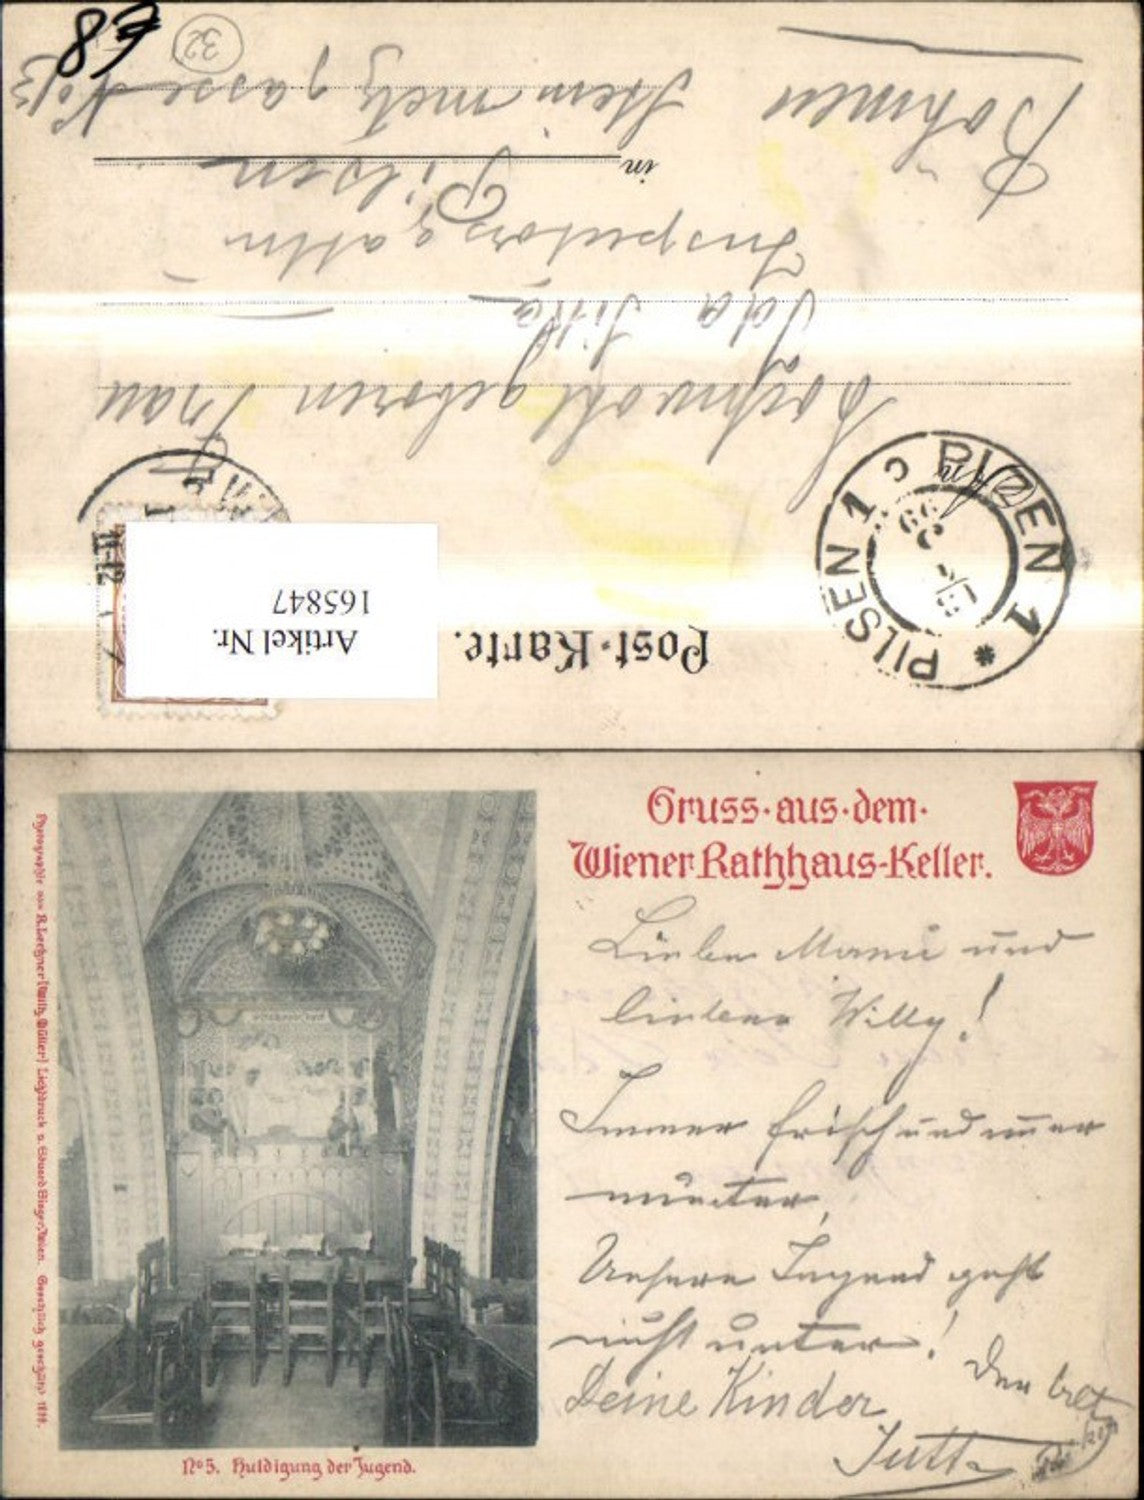 €8
32
Post-Karte.
Artikel Nr.
165847
PILSEN 1
PLZEN 1
WIEN
11-12
Hochwohlgeboren Frau
Ida
Inspektorsgattin
in Pilsen
Steinmetzgasse No 13
Böhmen
Gruss·aus·dem·
Wiener Rathhaus-Keller.
Lieber Mami und
lieber Willy!
Immer frisch und immer
munter,
Unsere Jugend geht
nicht unter!
Deine Kinder
Jutta
Photographie von R. Lechner (Wilh. Müller) Lichtdruck v. Eduard Sieger, Wien. Gesetzlich geschützt 1899.
No 5. Huldigung der Jugend.